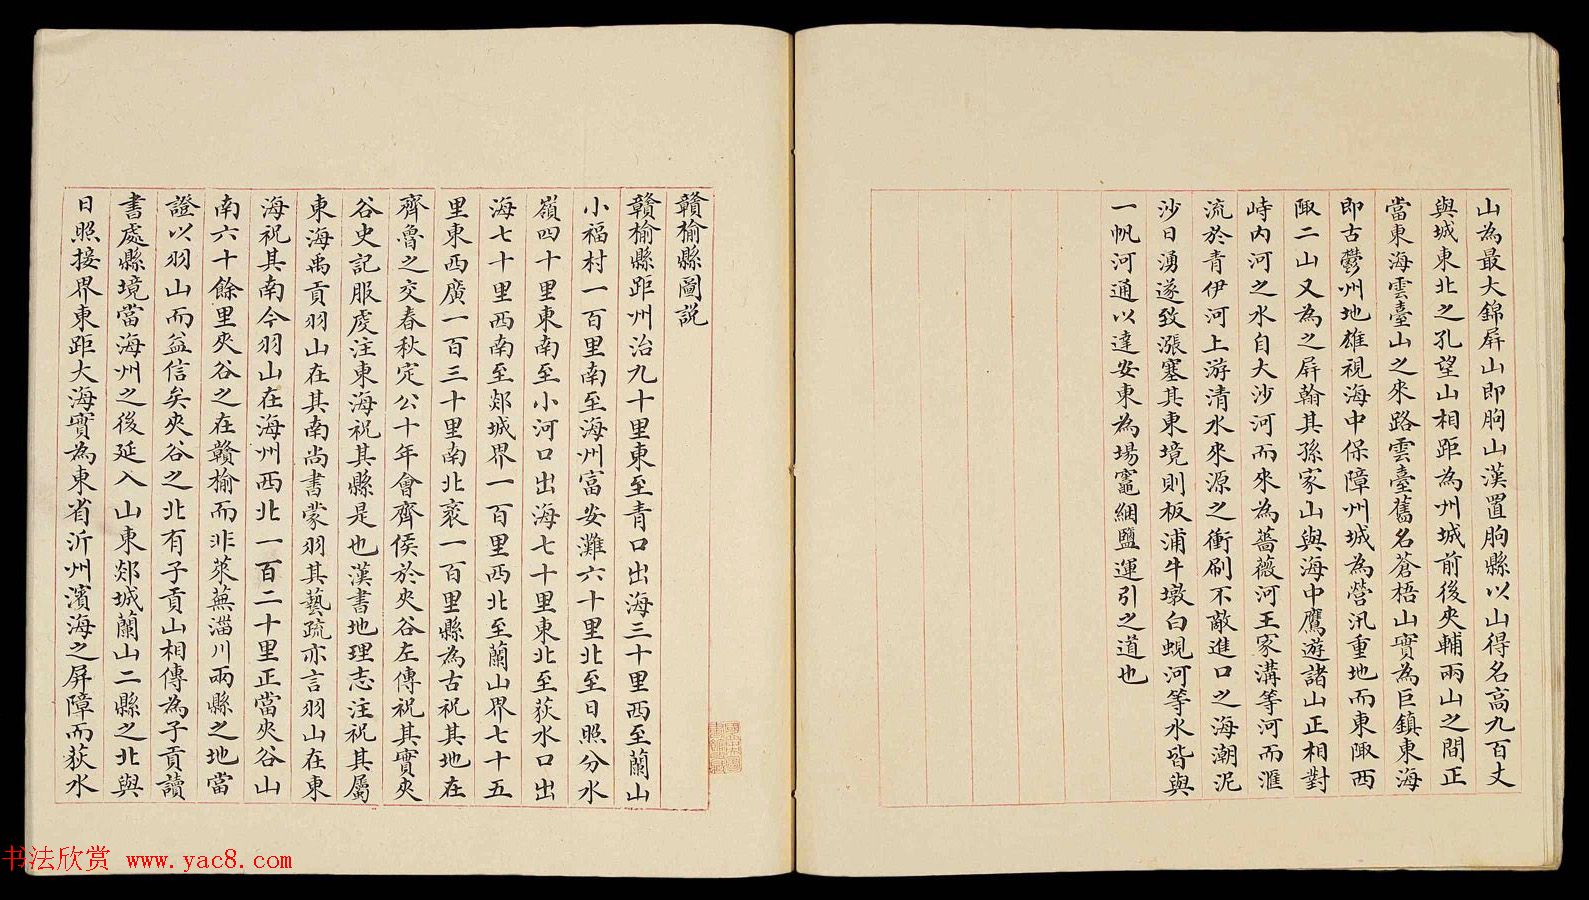 山為最大錦屏山即朐山漢置朐縣以山得名高九百丈
與城東北之孔望山相距為州城前後夾輔兩山之間正
當東海雲臺山之來路雲臺舊名蒼梧山實為巨鎮東海
即古鬱州地雄視海中保障州城為營汛重地而東陬西
陬二山又為之屏翰其孫家山與海中鷹遊諸山正相對
峙內河之水自大沙河而來為薔薇河王家溝等河而滙
流於青伊河上游清水來源之衝刷不敵進口之海潮泥
沙日湧遂致漲塞其東境則板浦牛墩白蜆河等水皆與
一帆河通以達安東為場竈綑鹽運引之道也
贛榆縣圖説
贛榆縣距州治九十里東至青口出海三十里西至蘭山
小福村一百里南至海州富安灘六十里北至日照分水
嶺四十里東南至小河口出海七十里東北至荻水口出
海七十里西南至郯城界一百里西北至蘭山界七十五
里東西廣一百三十里南北袤一百里縣為古祝其地在
齊魯之交春秋定公十年會齊侯於夾谷左傳祝其實夾
谷史記服虔注東海祝其縣是也漢書地理志注祝其屬
東海禹貢羽山在其南尚書蒙羽其藝疏亦言羽山在東
海祝其南今羽山在海州西北一百二十里正當夾谷山
南六十餘里夾谷之在贛榆而非萊蕪淄川兩縣之地當
證以羽山而益信矣夾谷之北有子貢山相傳為子貢讀
書處縣境當海州之後延入山東郯城蘭山二縣之北與
日照接界東距大海實為東省沂州濱海之屏障而荻水
书法欣赏 www.yac8.com